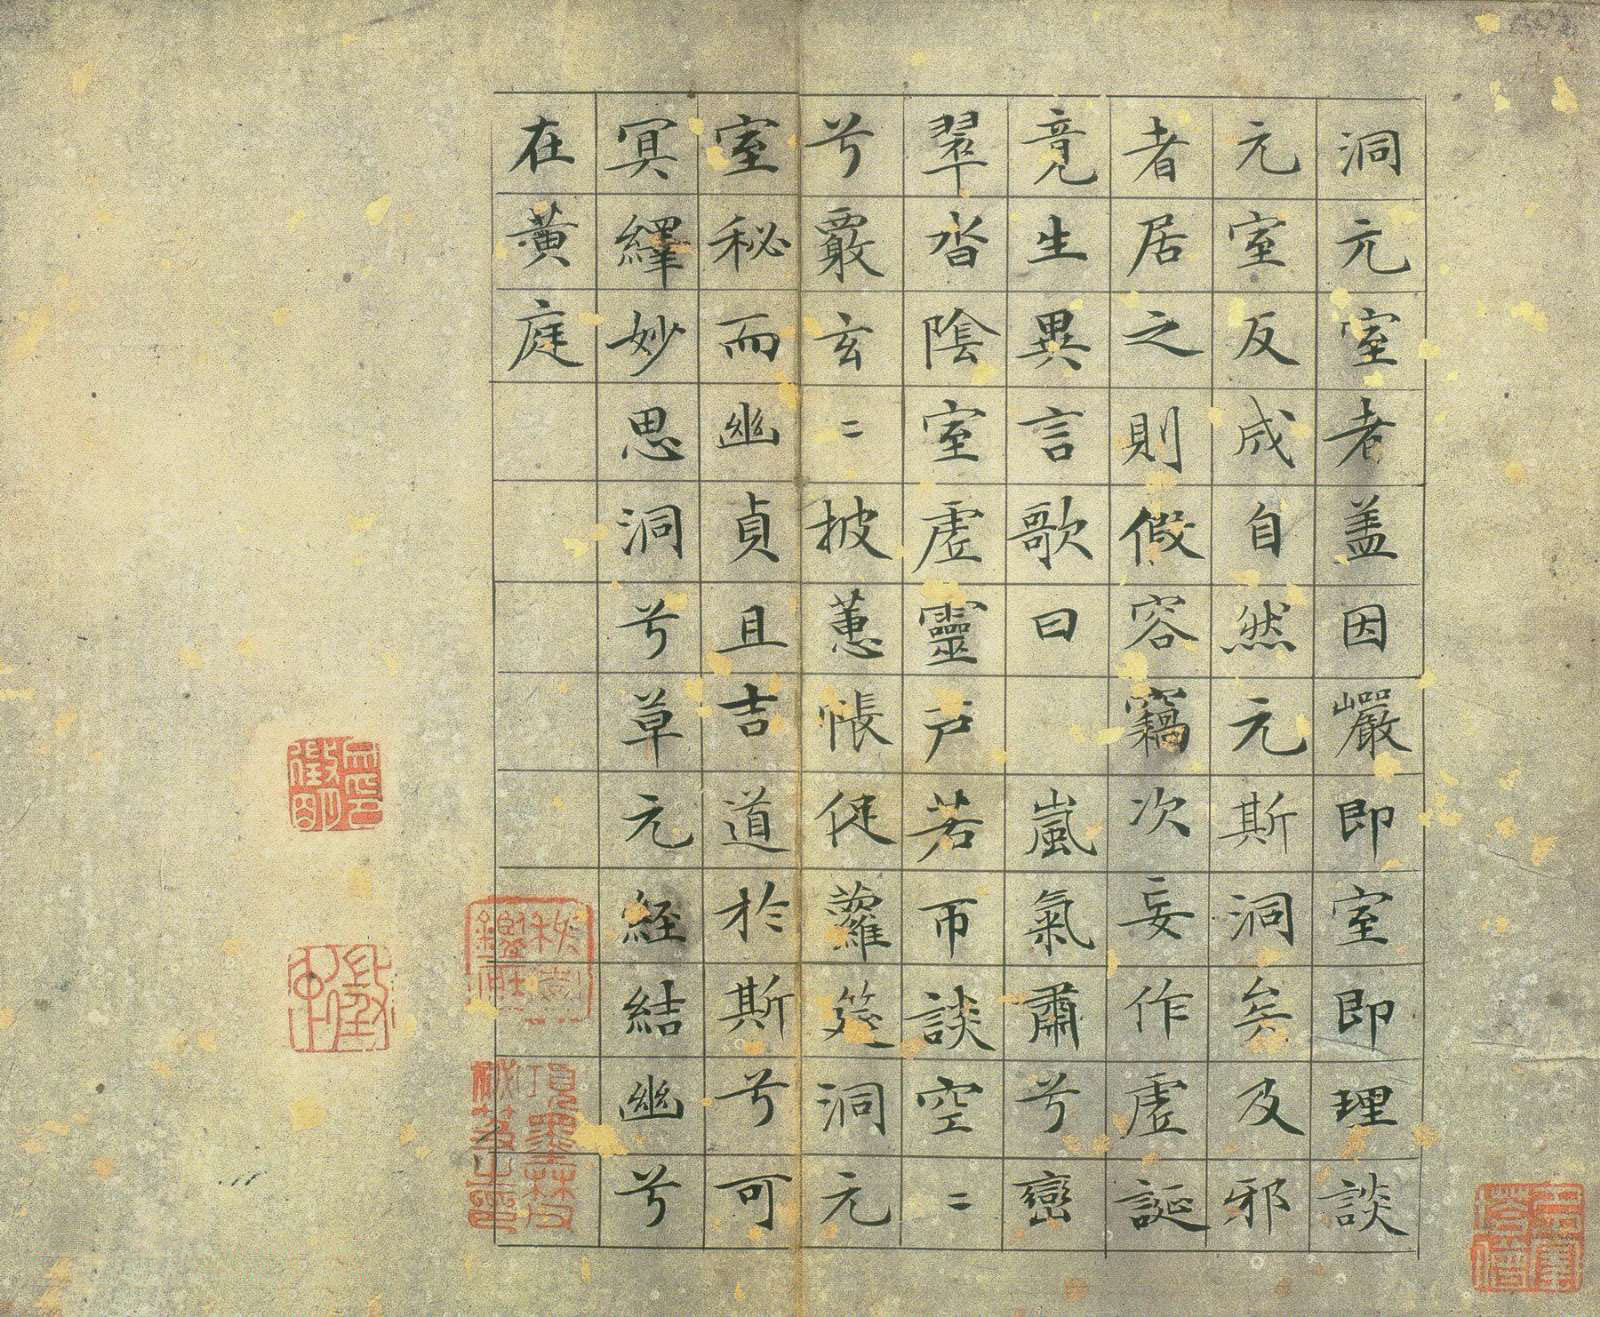 洞元室者盖因巗即室即理談
元室反成自然元斯洞矣及邪
者居之則假容竊次妄作虚誕
竟生異言歌曰 嵐氣肅兮巒
翠沓陰室虚靈户若帀談空〻
兮覈玄〻披蕙帳促蘿筵洞元
室秘而幽貞且吉道於斯兮可
冥繹妙思洞兮草元經結幽兮
在黄庭
項墨林父
祕笈之印